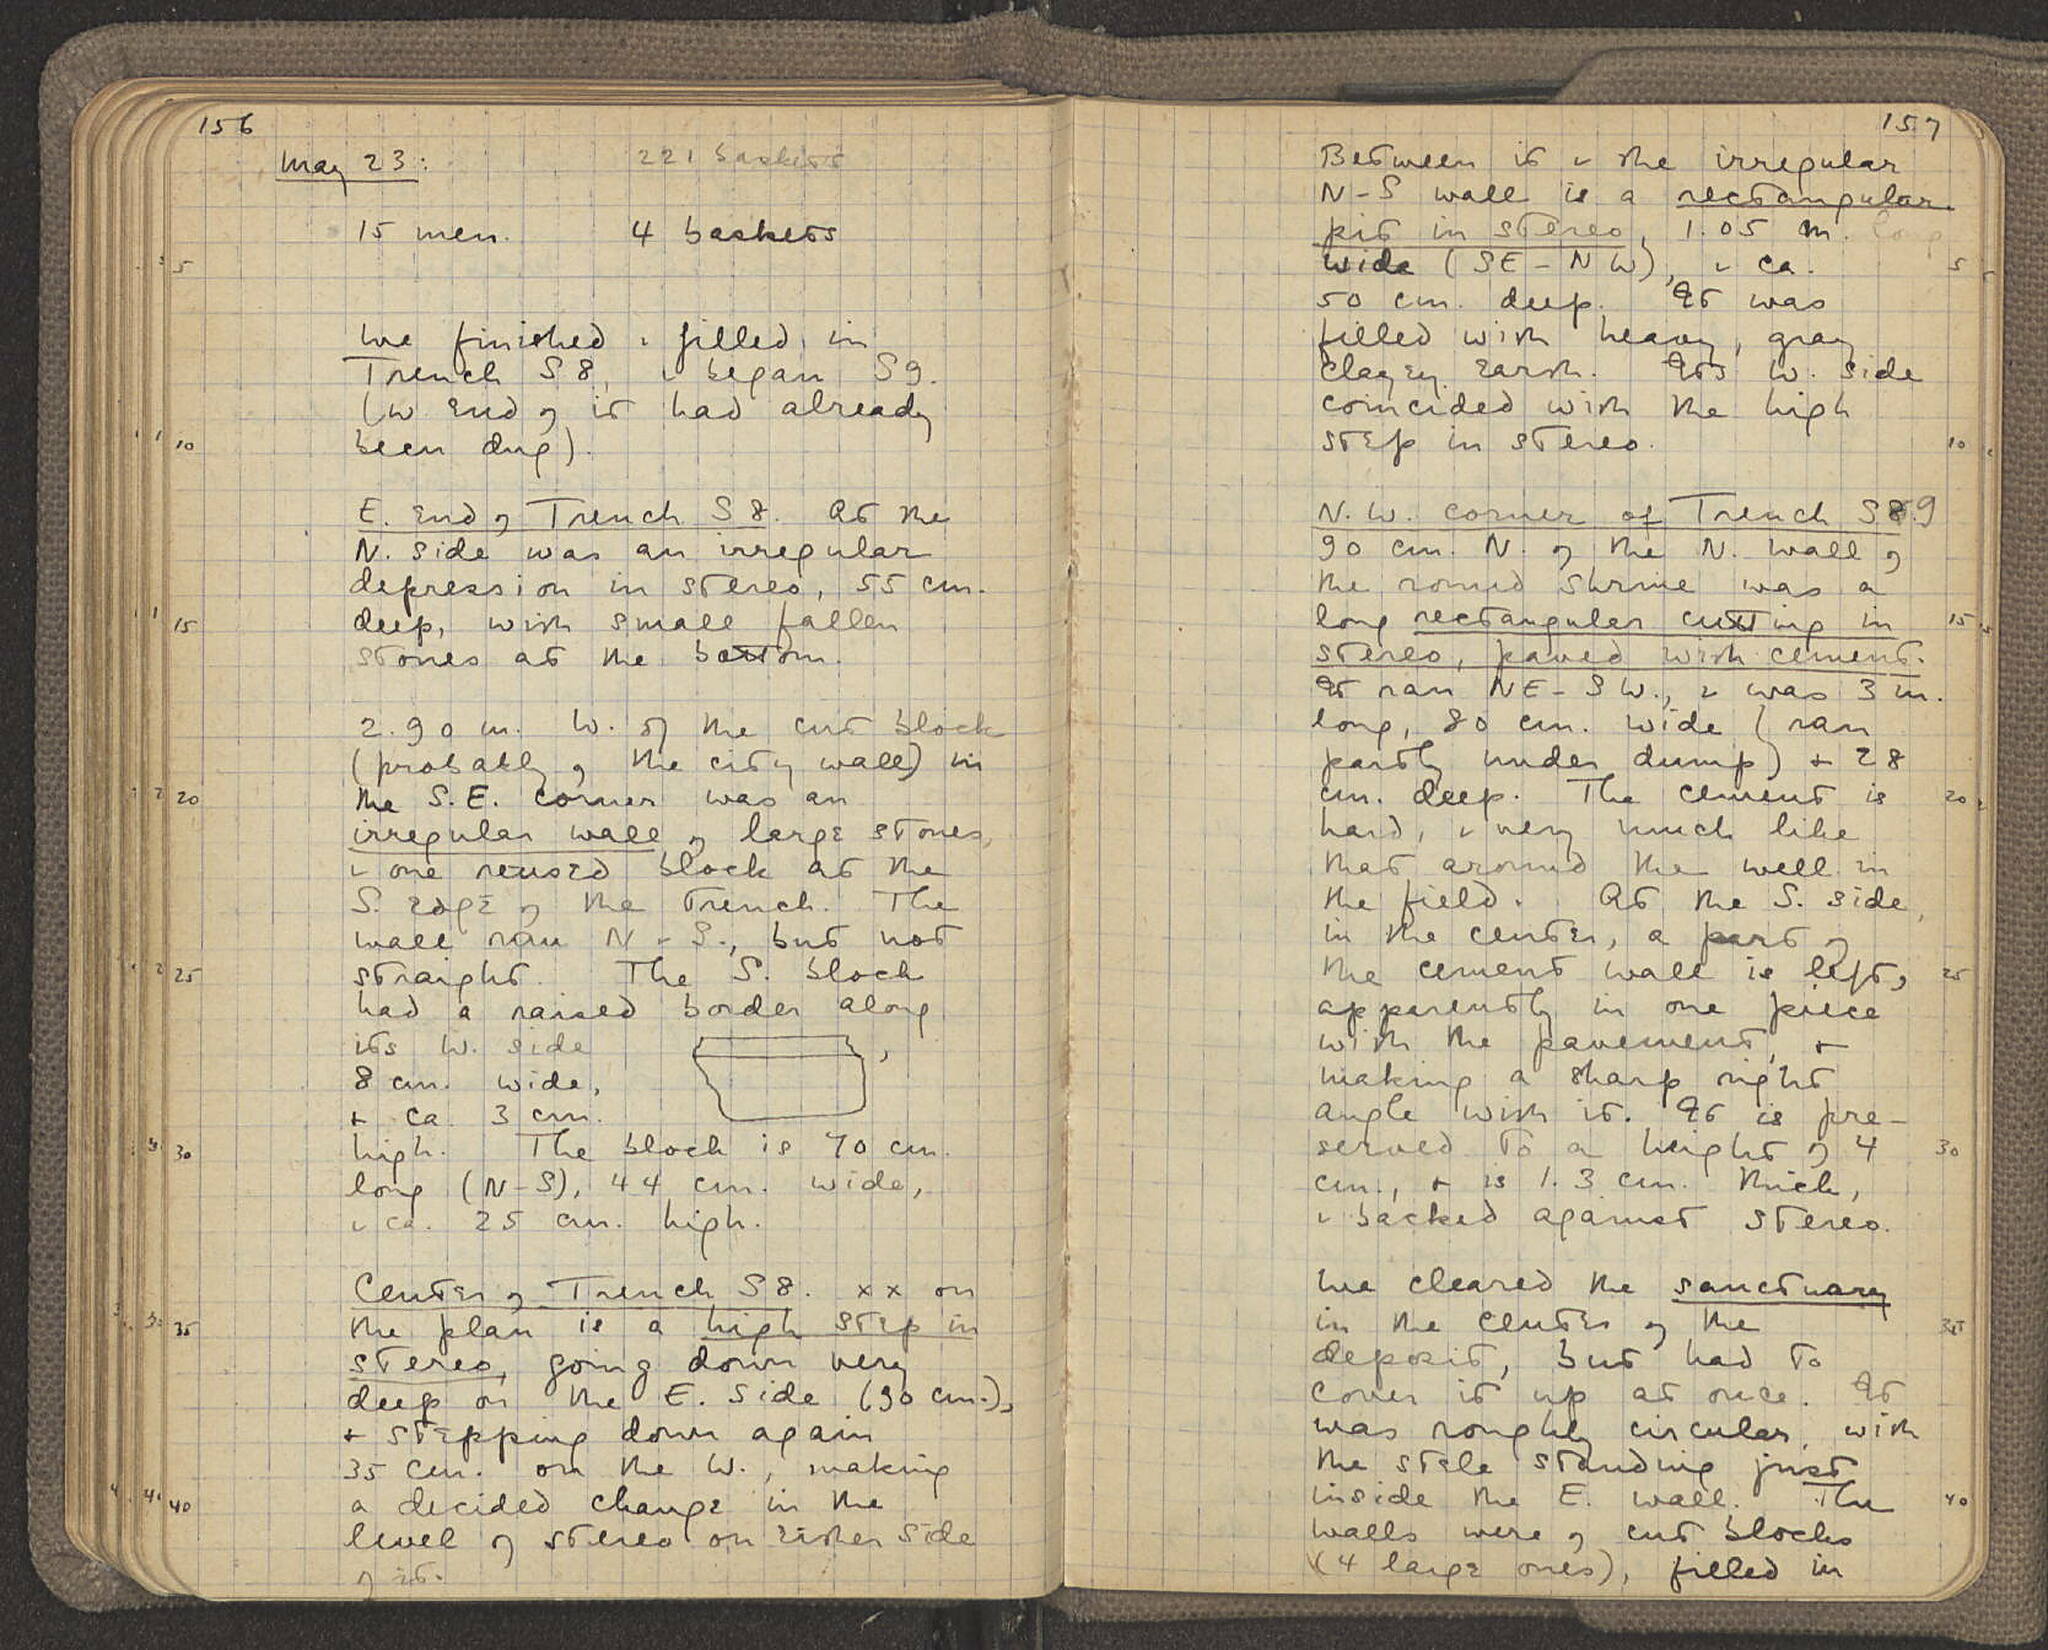 156
May 23: 221 baskets
15 men. 4 baskets
5
We finished & filled in
Trench S8, & began S9.
(W End of it had already
10 been dug).
E. End of Trench S8. At the
N. side was an irregular
depression in stereo, 55 cm.
15 deep, with small fallen
stones at the bottom.
2.90 m. W. of the cut block
(probably of the city wall) in
20 the S.E. corner was an
irregular wall of large stones,
& one reused block at the
S. edge of the trench. The
wall ran N-S., but not
25 straight. The S. block
had a raised border along
its W. side ,
8 cm. wide,
+ ca. 3 cm.
30 high. The block is 70 cm.
long (N-S), 44 cm. wide,
& ca. 25 cm. high.
Center of Trench S8. xx on
35 the plan is a high step in
stereo, going down very
deep on the E. side (90 cm.),
+ stepping down again
35 cm. on the W., making
40 a decided change in the
level of stereo on either side
of it.
157
Between it & the irregular
N-S wall is a rectangular
pit in stereo, 1.05 m. long
wide (SE-NW), & ca. 5
50 cm. deep. It was
filled with heavy, gray
clayey earth. Its W. side
coincided with the high
step in stereo. 10
N.W. corner of Trench S8.9
90 cm. N. of the N. wall of
the round shrine was a
long rectangular cutting in 15
stereo, paved with cement.
It ran NE-SW., & was 3 m.
long, 80 cm. wide (ran
partly under dump) + 28
cm. deep. The cement is 20
hard, & very much like
that around the well in
the field. At the S. side,
in the center, a part of
the cement wall is left, 25
apparently in one piece
with the pavement, +
making a sharp right
angle with it. It is pre-
served to a height of 4 30
cm., + is 1.3 cm. thick,
& backed against stereo.
We cleared the sanctuary
in the center of the 35
deposit, but had to
cover it up at once. It
was roughly circular, with
the stele standing just
inside the E. wall. The 40
walls were of cut blocks
(4 large ones), filled in